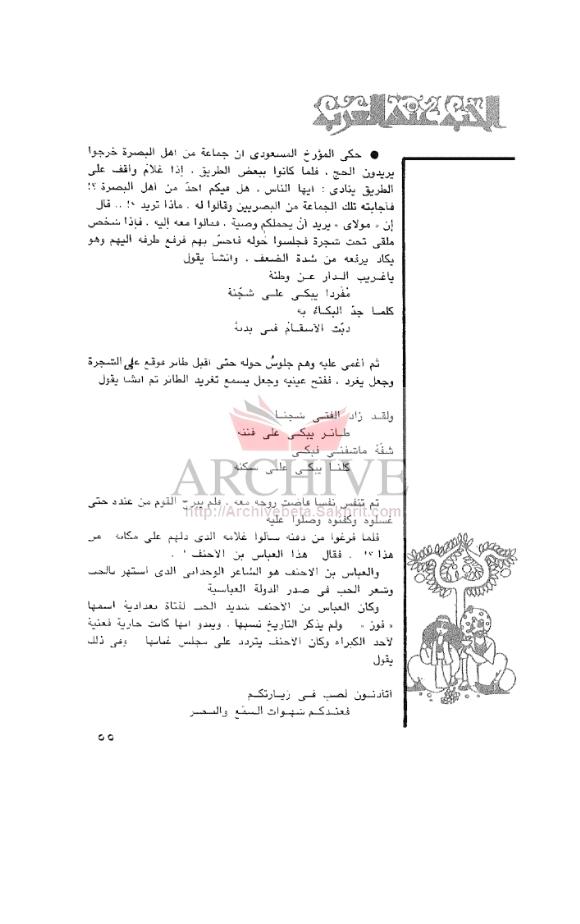 الحب عند العرب
● حكى المؤرخ المسعودى ان جماعة من اهل البصرة خرجوا
يريدون الحج ، فلما كانوا ببعض الطريق ، إذا غلامٌ واقف على
الطريق ينادى : ايها الناس ، هل فيكم احدٌ من اهل البصرة ؟!
فاجابته تلك الجماعة من البصريين وقالوا له ، ماذا تريد ؟! .. قال
إن « مولاى » يريد أن يحملكم وصية ، فمالوا معه إليه ، فإذا شخص
ملقى تحت شجرة فجلسوا حوله فاحسّ بهم فرفع طرفه اليهم وهو
يكاد يرفعه من شدة الضعف ، وانشا يقول
ياغريب الدار عن وطنه
مُفردا يبكى على شجَنه
كلما جدّ البكاءُ به
دبّت الأسقامُ فى بدنه
ثم أغمى عليه وهم جلوسٌ حوله حتى اقبل طائر فوقع على الشجرة
وجعل يغرد ، ففتح عينيه وجعل يسمع تغريد الطائر ثم انشا يقول
ولقد زاد الفتى شجنا
طائر يبكى على فننه
شفّه ماشفنى فبكى
كلنا يبكى على سكنه
ARCHIVE
http://Archivebeta.Sakhrit.com
ثم تنفس نفسا فاضت روحه معه ، فلم يبرح القوم من عنده حتى
غسلوه وكفنوه وصلوا عليه
فلما فرغوا من دفنه سالوا غلامه الذى دلهم على مكانه من
هذا ؟! . فقال هذا العباس بن الاحنف ! .
والعباس بن الاحنف هو الشاعر الوجدانى الذى اشتهر بالحب
وشعر الحب فى صدر الدولة العباسية
وكان العباس بن الاحنف شديد الحب لفتاة بغدادية اسمها
« فوز » ولم يذكر التاريخ نسبها ، ويبدو انها كانت جارية فغنية
لاحد الكبراء وكان الاحنف يتردد على مجلس غنائها وفى ذلك
يقول
اتاذنون لصب فى زيارتكم
فعندكم شهوات السمع والبصر
٥٥